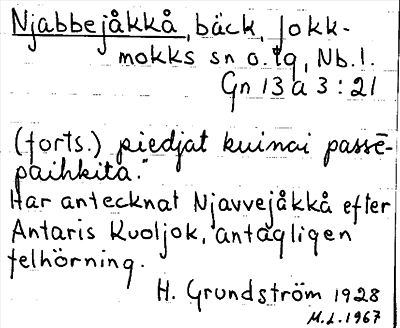 Njabbejåkkå, bäck, Jokk-
mokks sn o. tg, Nb. l.
Gn 13 a 3 : 21
(forts.) piedjat kuinai passē-
paihkita."
Har antecknat Njavvejåkkå efter
Antaris Kuoljok, antagligen
felhörning.
H. Grundström 1928
M.L. 1967